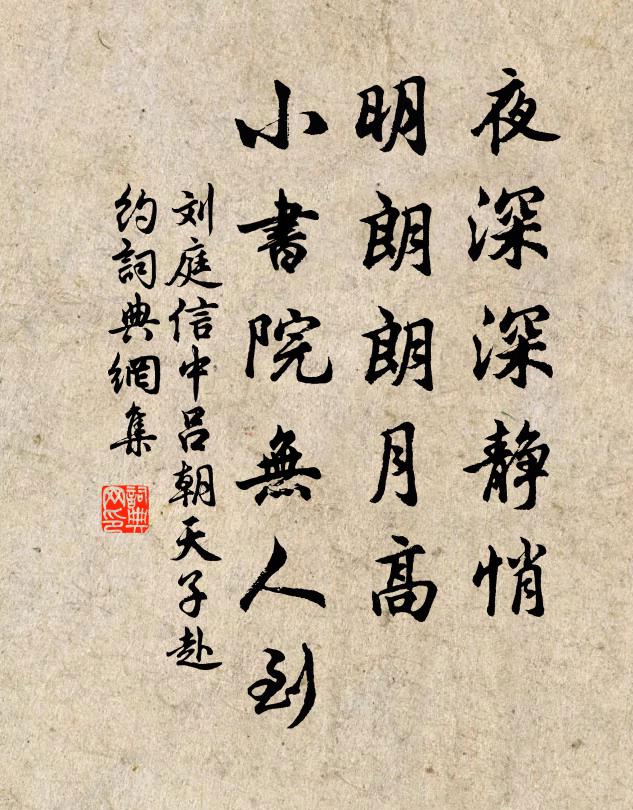 夜深深静悄
明朗朗月高
小書院無人到
刘庭信中吕朝天子赴
约詞典網集
詞典
网印